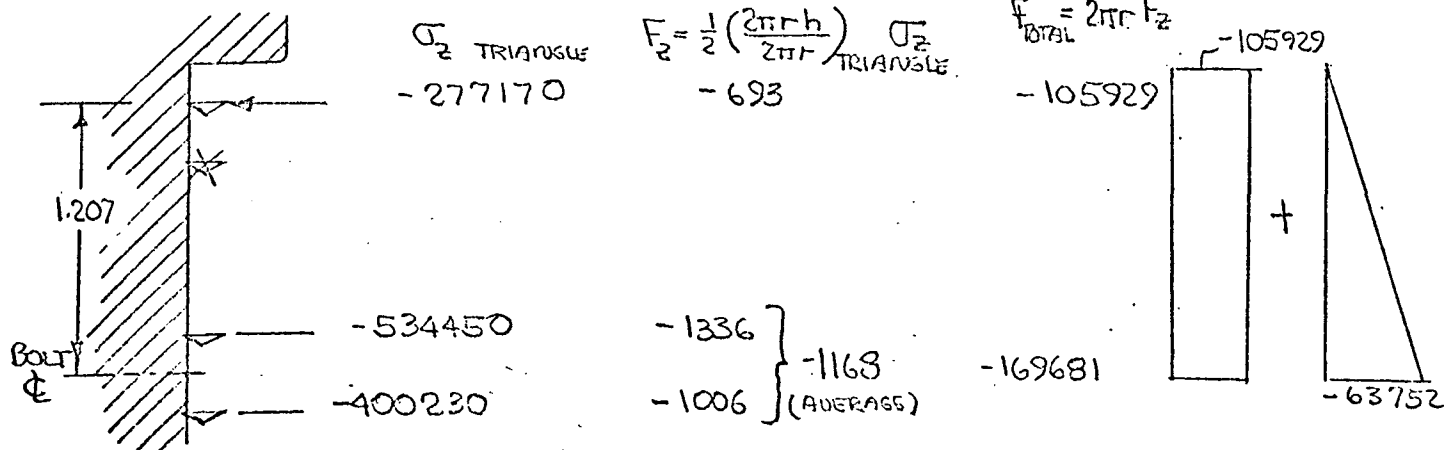 σz TRIANGLE
Fz = 1/2 (2πrh / 2πr) σz TRIANGLE
FTOTAL = 2πr Fz
-105929
-277170
-693
-105929
1.207
+
-534450
-1336
BOLT
℄
-1168
(AVERAGE)
-169681
-400230
-1006
-63752